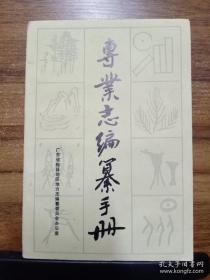 專業志編纂手册
广东省梅县地区地方志编纂委员会办公室